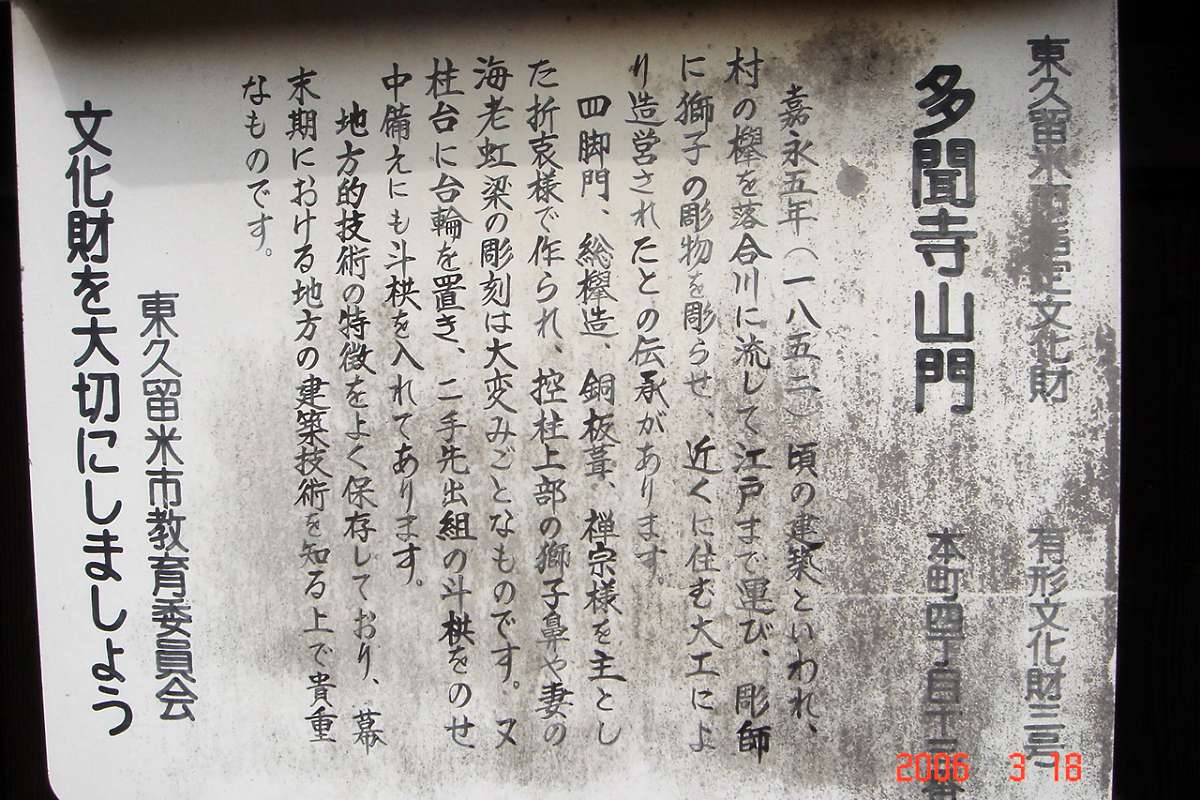 東久留米市指定文化財　有形文化財三号
多聞寺山門　本町四丁目十三番
嘉永五年（一八五二）頃の建築といわれ、
村の欅を落合川に流して江戸まで運び、彫師
に獅子の彫物を彫らせ、近くに住む大工によ
り造営されたとの伝承があります。
四脚門、総欅造、銅板葺、禅宗様を主とし
た折衷様で作られ、控柱上部の獅子鼻や妻の
海老虹梁の彫刻は大変みごとなものです。又
柱台に台輪を置き、二手先出組の斗栱をのせ
中備えにも斗栱を入れてあります。
地方的技術の特徴をよく保存しており、幕
末期における地方の建築技術を知る上で貴重
なものです。
東久留米市教育委員会
文化財を大切にしましょう
2006 3 18